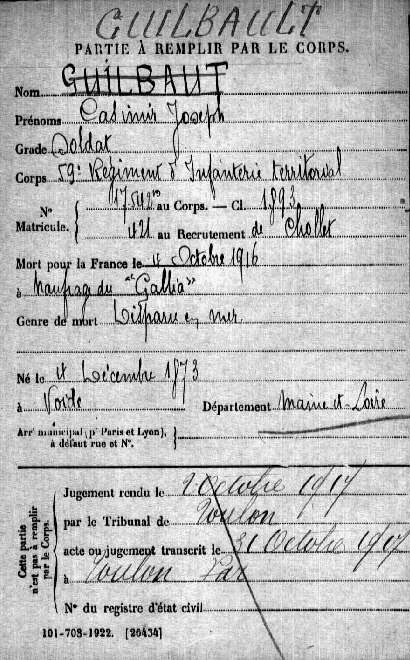 GUILBAULT
PARTIE À REMPLIR PAR LE CORPS.
Nom GUILBAUT
Prénoms Casimir Joseph
Grade Soldat
Corps 59e Régiment d'Infanterie territorial
N° Matricule. { au Corps. — Cl. 1893
421 au Recrutement de Chollet
Mort pour la France le 4 Octobre 1916
à Naufrag du "Gallia"
Genre de mort Disparu en mer
Né le 4 Décembre 1873
à Département Maine et-Loire
Arrt municipal (pr Paris et Lyon), à défaut rue et N°. {
Cette partie n'est pas à remplir par le Corps.
Jugement rendu le 2 Octobre 1917
par le Tribunal de Toulon
acte ou jugement transcrit le 31 Octobre 1917
à Toulon Var
N° du registre d'état civil
101-708-1922. [26434]